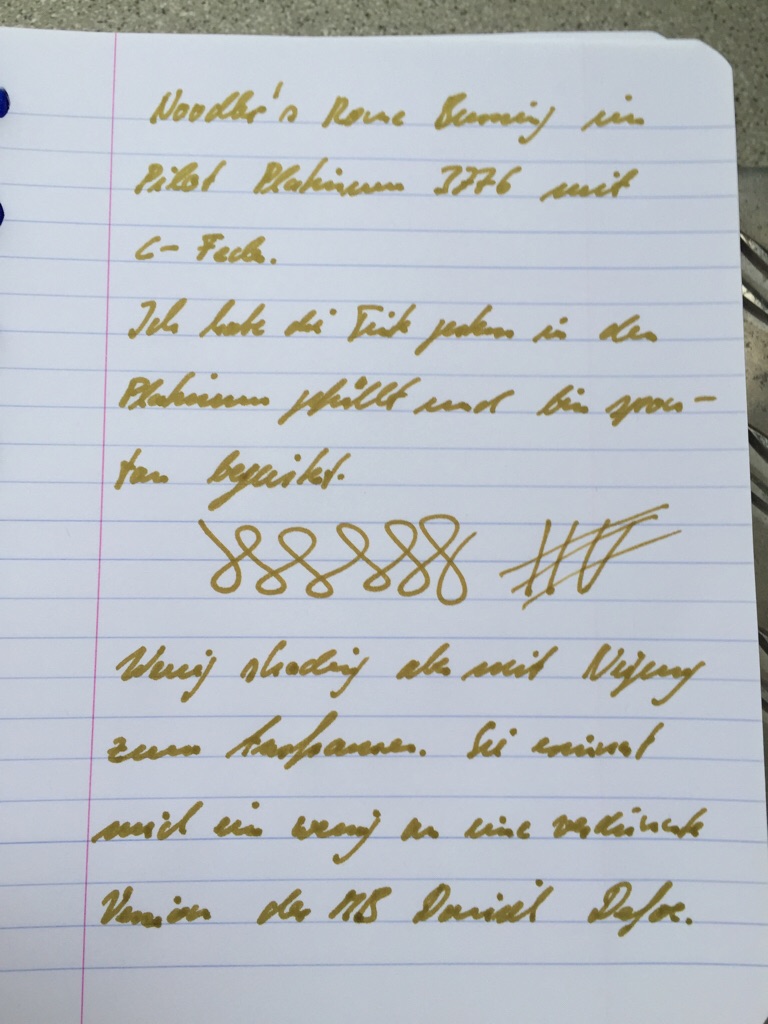 Noodler's Rome Burning im
Pilot Platinum 3776 mit
C-Feder.
Ich habe die Tinte gestern in den
Platinum gefüllt und bin spon-
tan begeistert.
Wenig shading aber mit Neigung
zum Ausfransen. Sie erinnert
mich ein wenig an eine verdünnte
Version der MB Daniel Defoe.